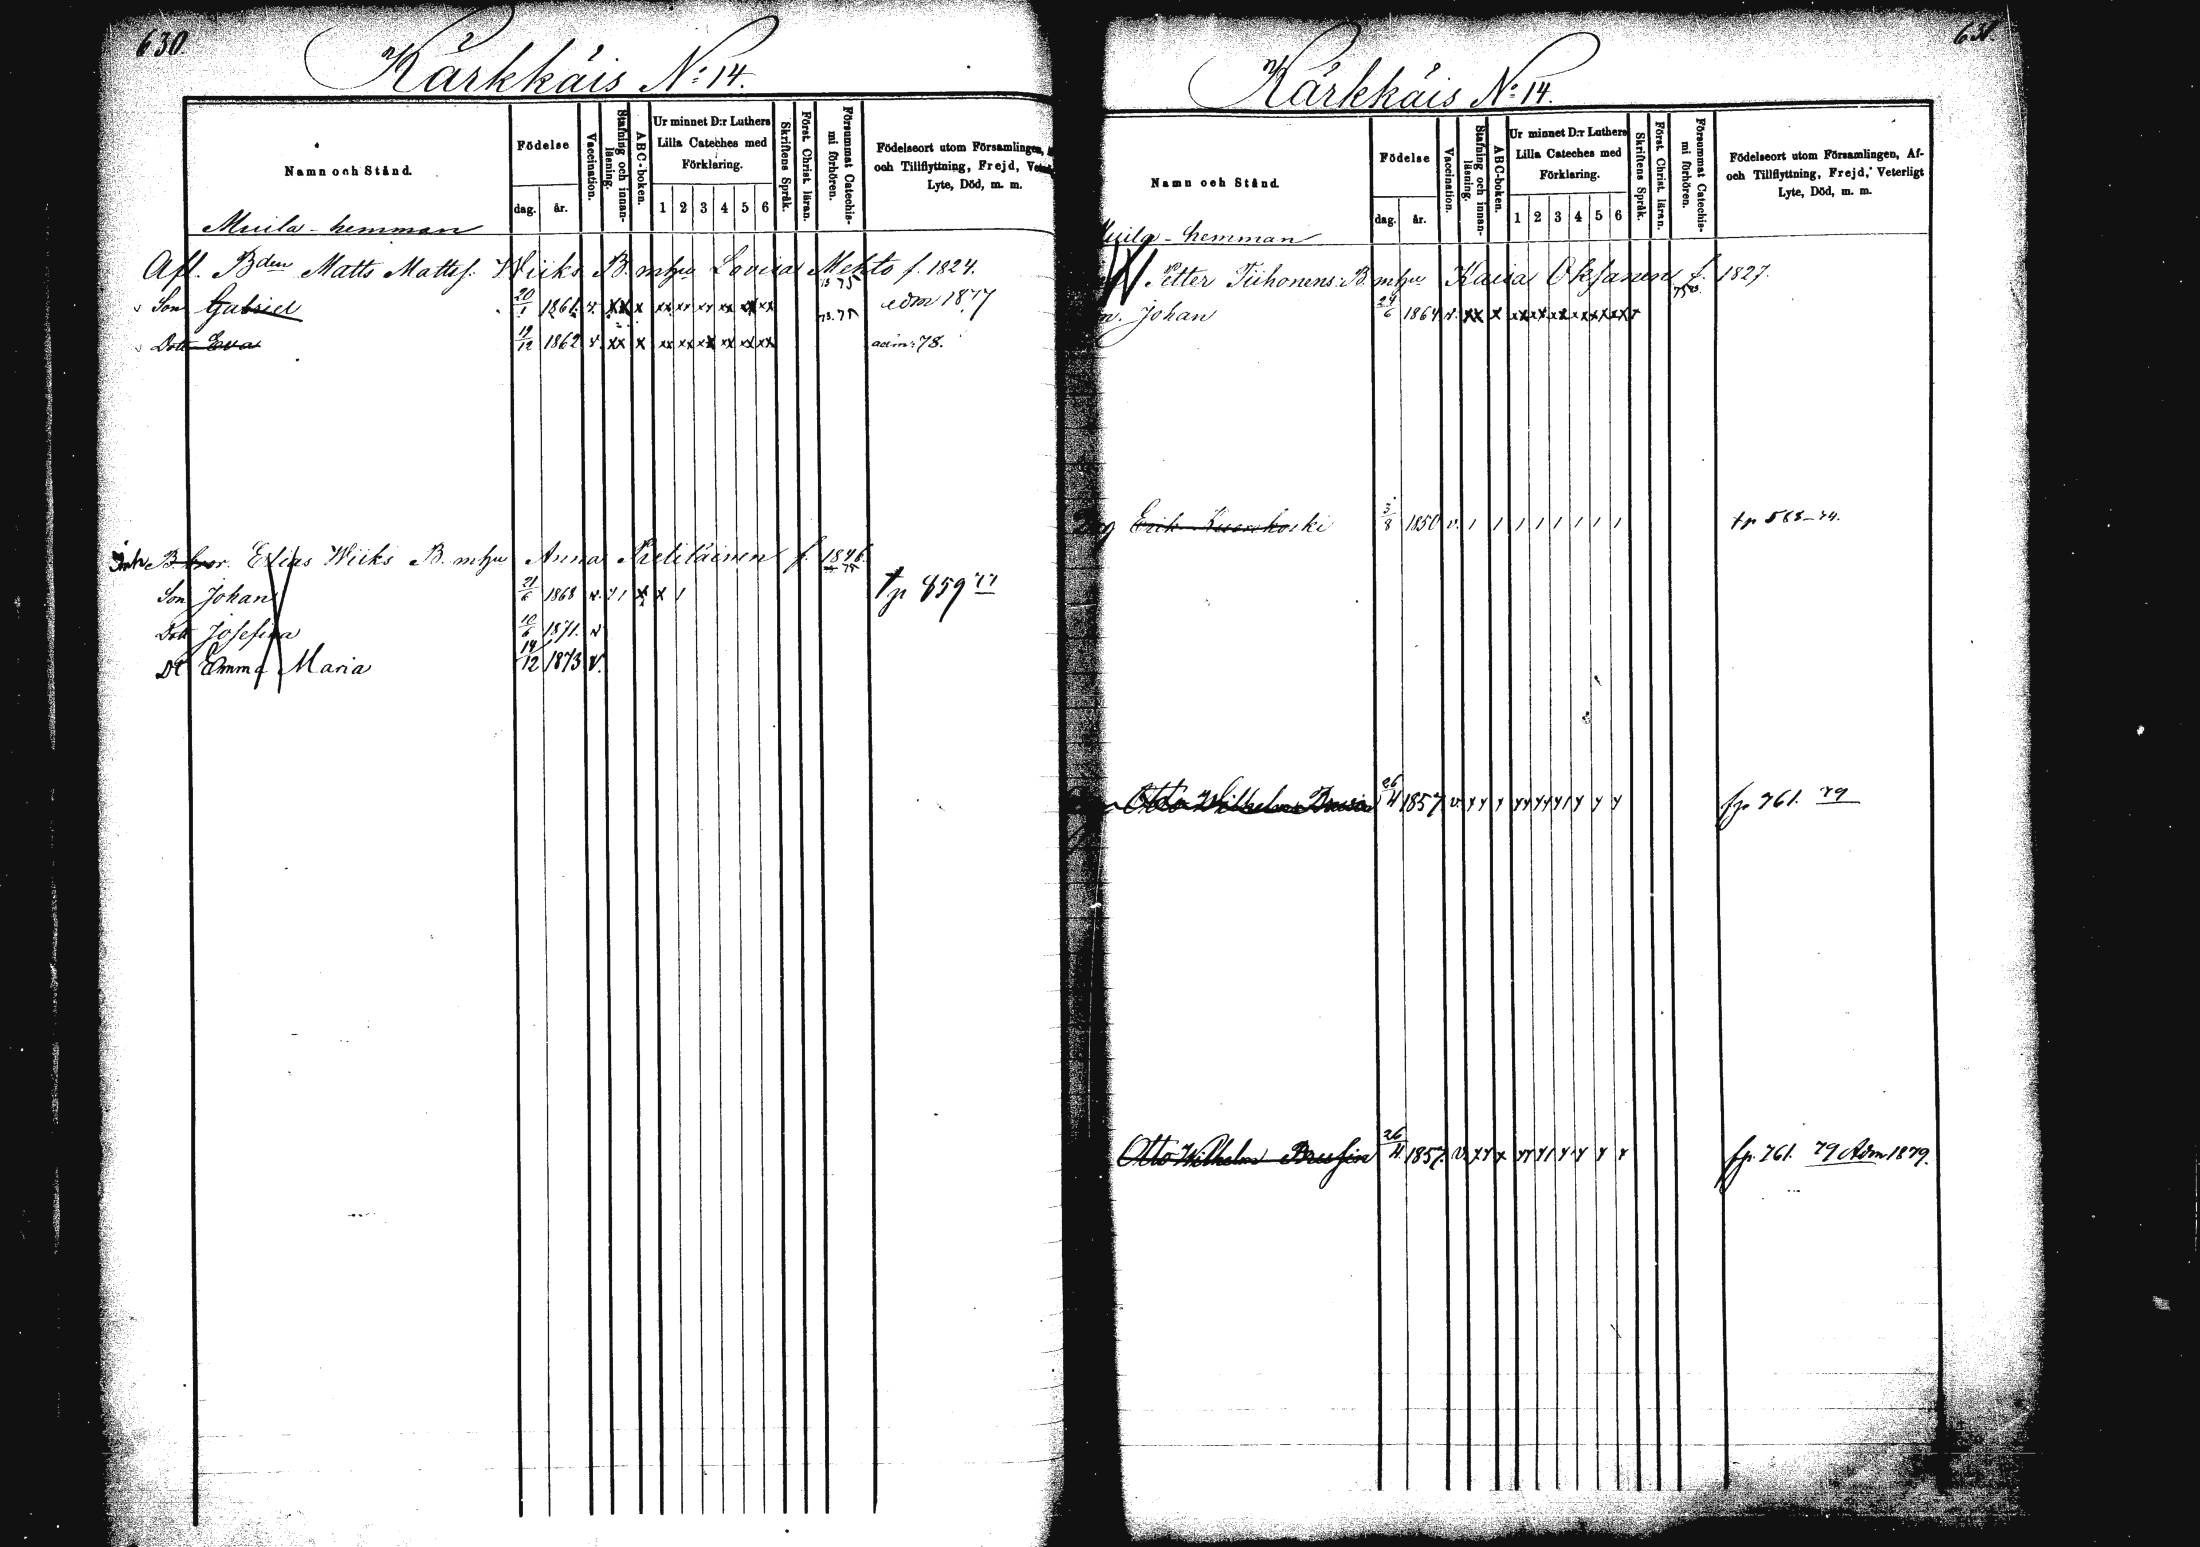 630.
Kärkkäis No: 14.
Namn och Stånd.
Födelse
dag. år.
Vaccination.
Stafning och innan-
läsning.
ABC-boken.
Ur minnet D:r Luthers
Lilla Cateches med
Förklaring.
1 2 3 4 5 6
Skriftens Språk.
Först. Christ. läran.
Försummat Catechis-
mi förhören.
Födelseort utom Församlingen,
och Tillflyttning, Frejd,
Lyte, Död, m. m.
Muila-hemman
Afl. Bden Matts Mattsf. Wiiks B. mhu Lovisa Mehto f. 1824.
73 75
Son Gabriel 20/1 1861. v. xx x xx xx xx xx xx xx 73. 75 adm 1877
Dott Eva 19/12 1862 v. xx x xx xx xx xx xx xx adm: 78.
Inh B. bror. Elias Wiiks B. mhu Anna f. 1846.
75
Son Johan 21/6 1868 v. x x fp 859 77
Dott Josefina 10/6 1871. v
Dt Emma Maria 14/12 1873 v.
631.
Kärkkäis No: 14.
Namn och Stånd.
Födelse
dag. år.
Vaccination.
Stafning och innan-
läsning.
ABC-boken.
Ur minnet D:r Luthers
Lilla Cateches med
Förklaring.
1 2 3 4 5 6
Skriftens Språk.
Först. Christ. läran.
Försummat Catechis-
mi förhören.
Födelseort utom Församlingen, Af-
och Tillflyttning, Frejd, Veterligt
Lyte, Död, m. m.
Muila-hemman
Petter Tiihonens B. mhu Kaisa Oksanen f. 1827.
Johan 24/6 1864 v. xx x
Erik 3/8 1850 v. 1 1 1 1 1 1 1 1 fp 563-74.
Otto Wilhelm 26/4 1857 v. fp 761. 79
Otto Wilhelm 26/4 1857. v. fp. 761. 79 Adm 1879.